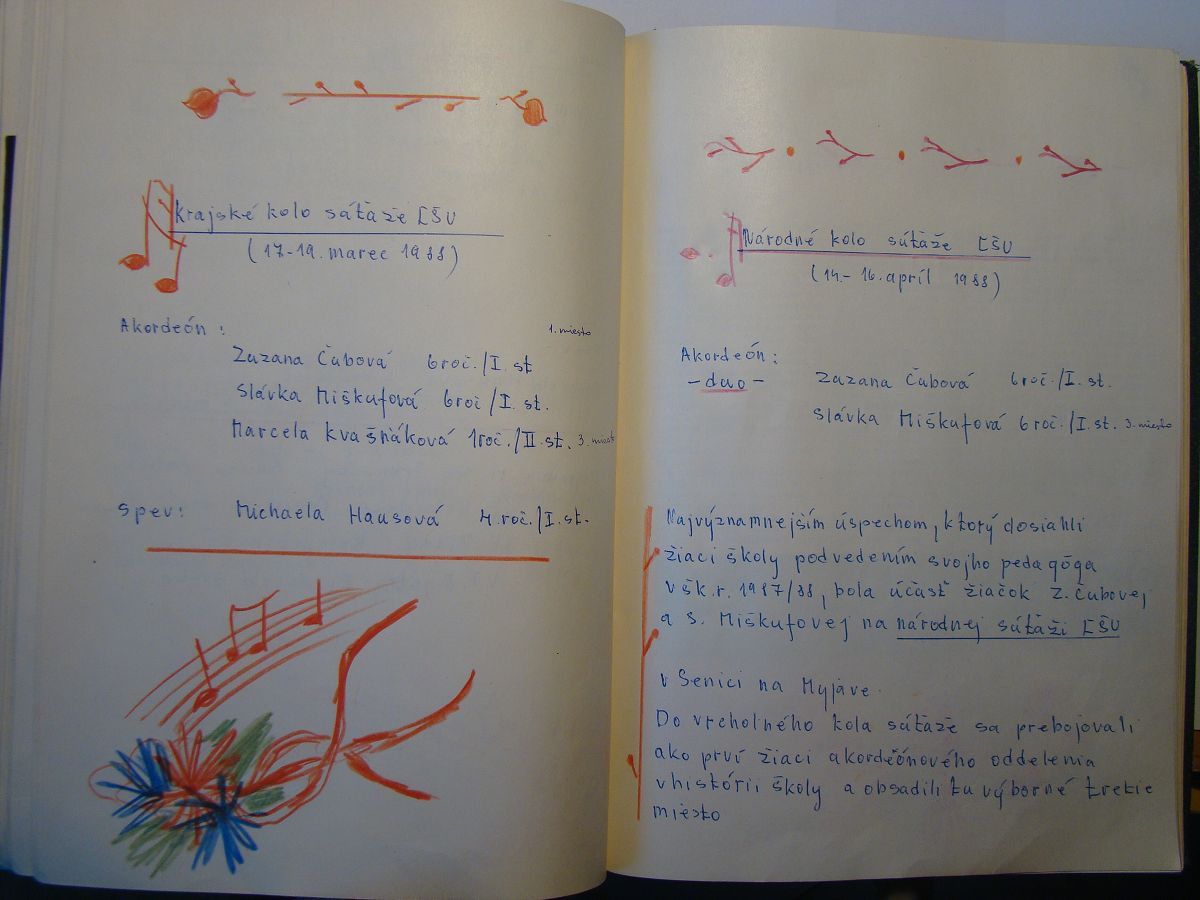 Krajské kolo súťaže ĽŠU
(17-19. marec 1988)
Akordeón: 1. miesto
Zuzana Čubová 6 roč./I. st
Slávka Miškufová 6 roč/I. st.
Marcela Kvašňáková 1 roč./II. st. 3. miesto
Spev: Michaela Hausová 4. roč./I. st.
Národné kolo súťaže ĽŠU
(14.-16. apríl 1988)
Akordeón:
- duo - Zuzana Čubová 6 roč./I. st.
Slávka Miškufová 6 roč./I. st. 3. miesto
Najvýznamnejším úspechom, ktorý dosiahli
žiaci školy pod vedením svojho pedagóga
v šk. r. 1987/88, bola účasť žiačok Z. Čubovej
a S. Miškufovej na národnej súťaži ĽŠU
v Senici na Myjave.
Do vrcholného kola súťaže sa prebojovali
ako prví žiaci akordeónového oddelenia
v histórii školy a obsadili tu výborné tretie
miesto